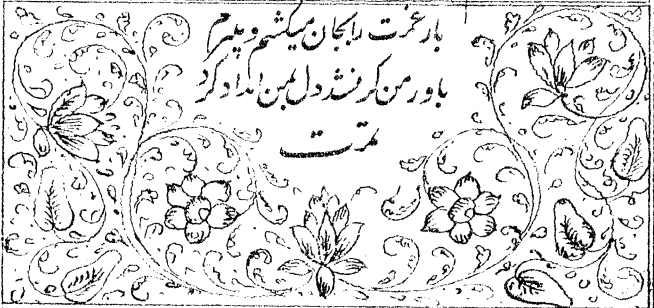 بار عزت را بجان میکشم و پلیرم
باور من کر نشد دل بمن امداد کرد
تمت